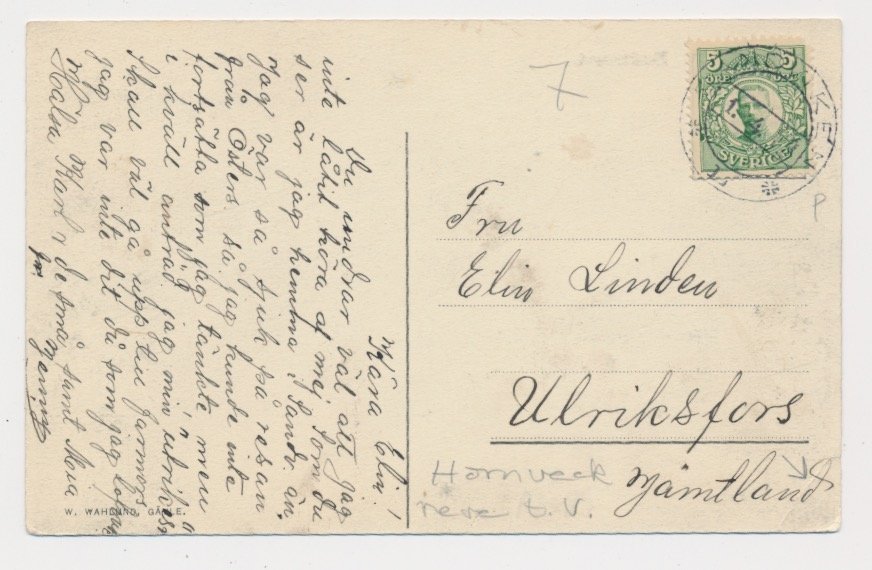 Kära Elin!
Du undrar väl att jag
inte låtit höra af mej som du
ser är jag hemma i Sandv. än.
Jag var så sjuk på resan
från Östers. så jag kunde inte
fortsätta som jag tänkte men
i kväll antrad. jag min
Skall väl gå upp till farmors
jag var inte dit då som jag
Hälsa Karl o de små samt Moa
fr. Jenny
W. WAHLUND, GÄFLE.
7
5 5
ÖRE
SVERIGE
P
Fru
Elin Linden
Ulriksfors
Jämtland
Hörnveck
reve t. V.